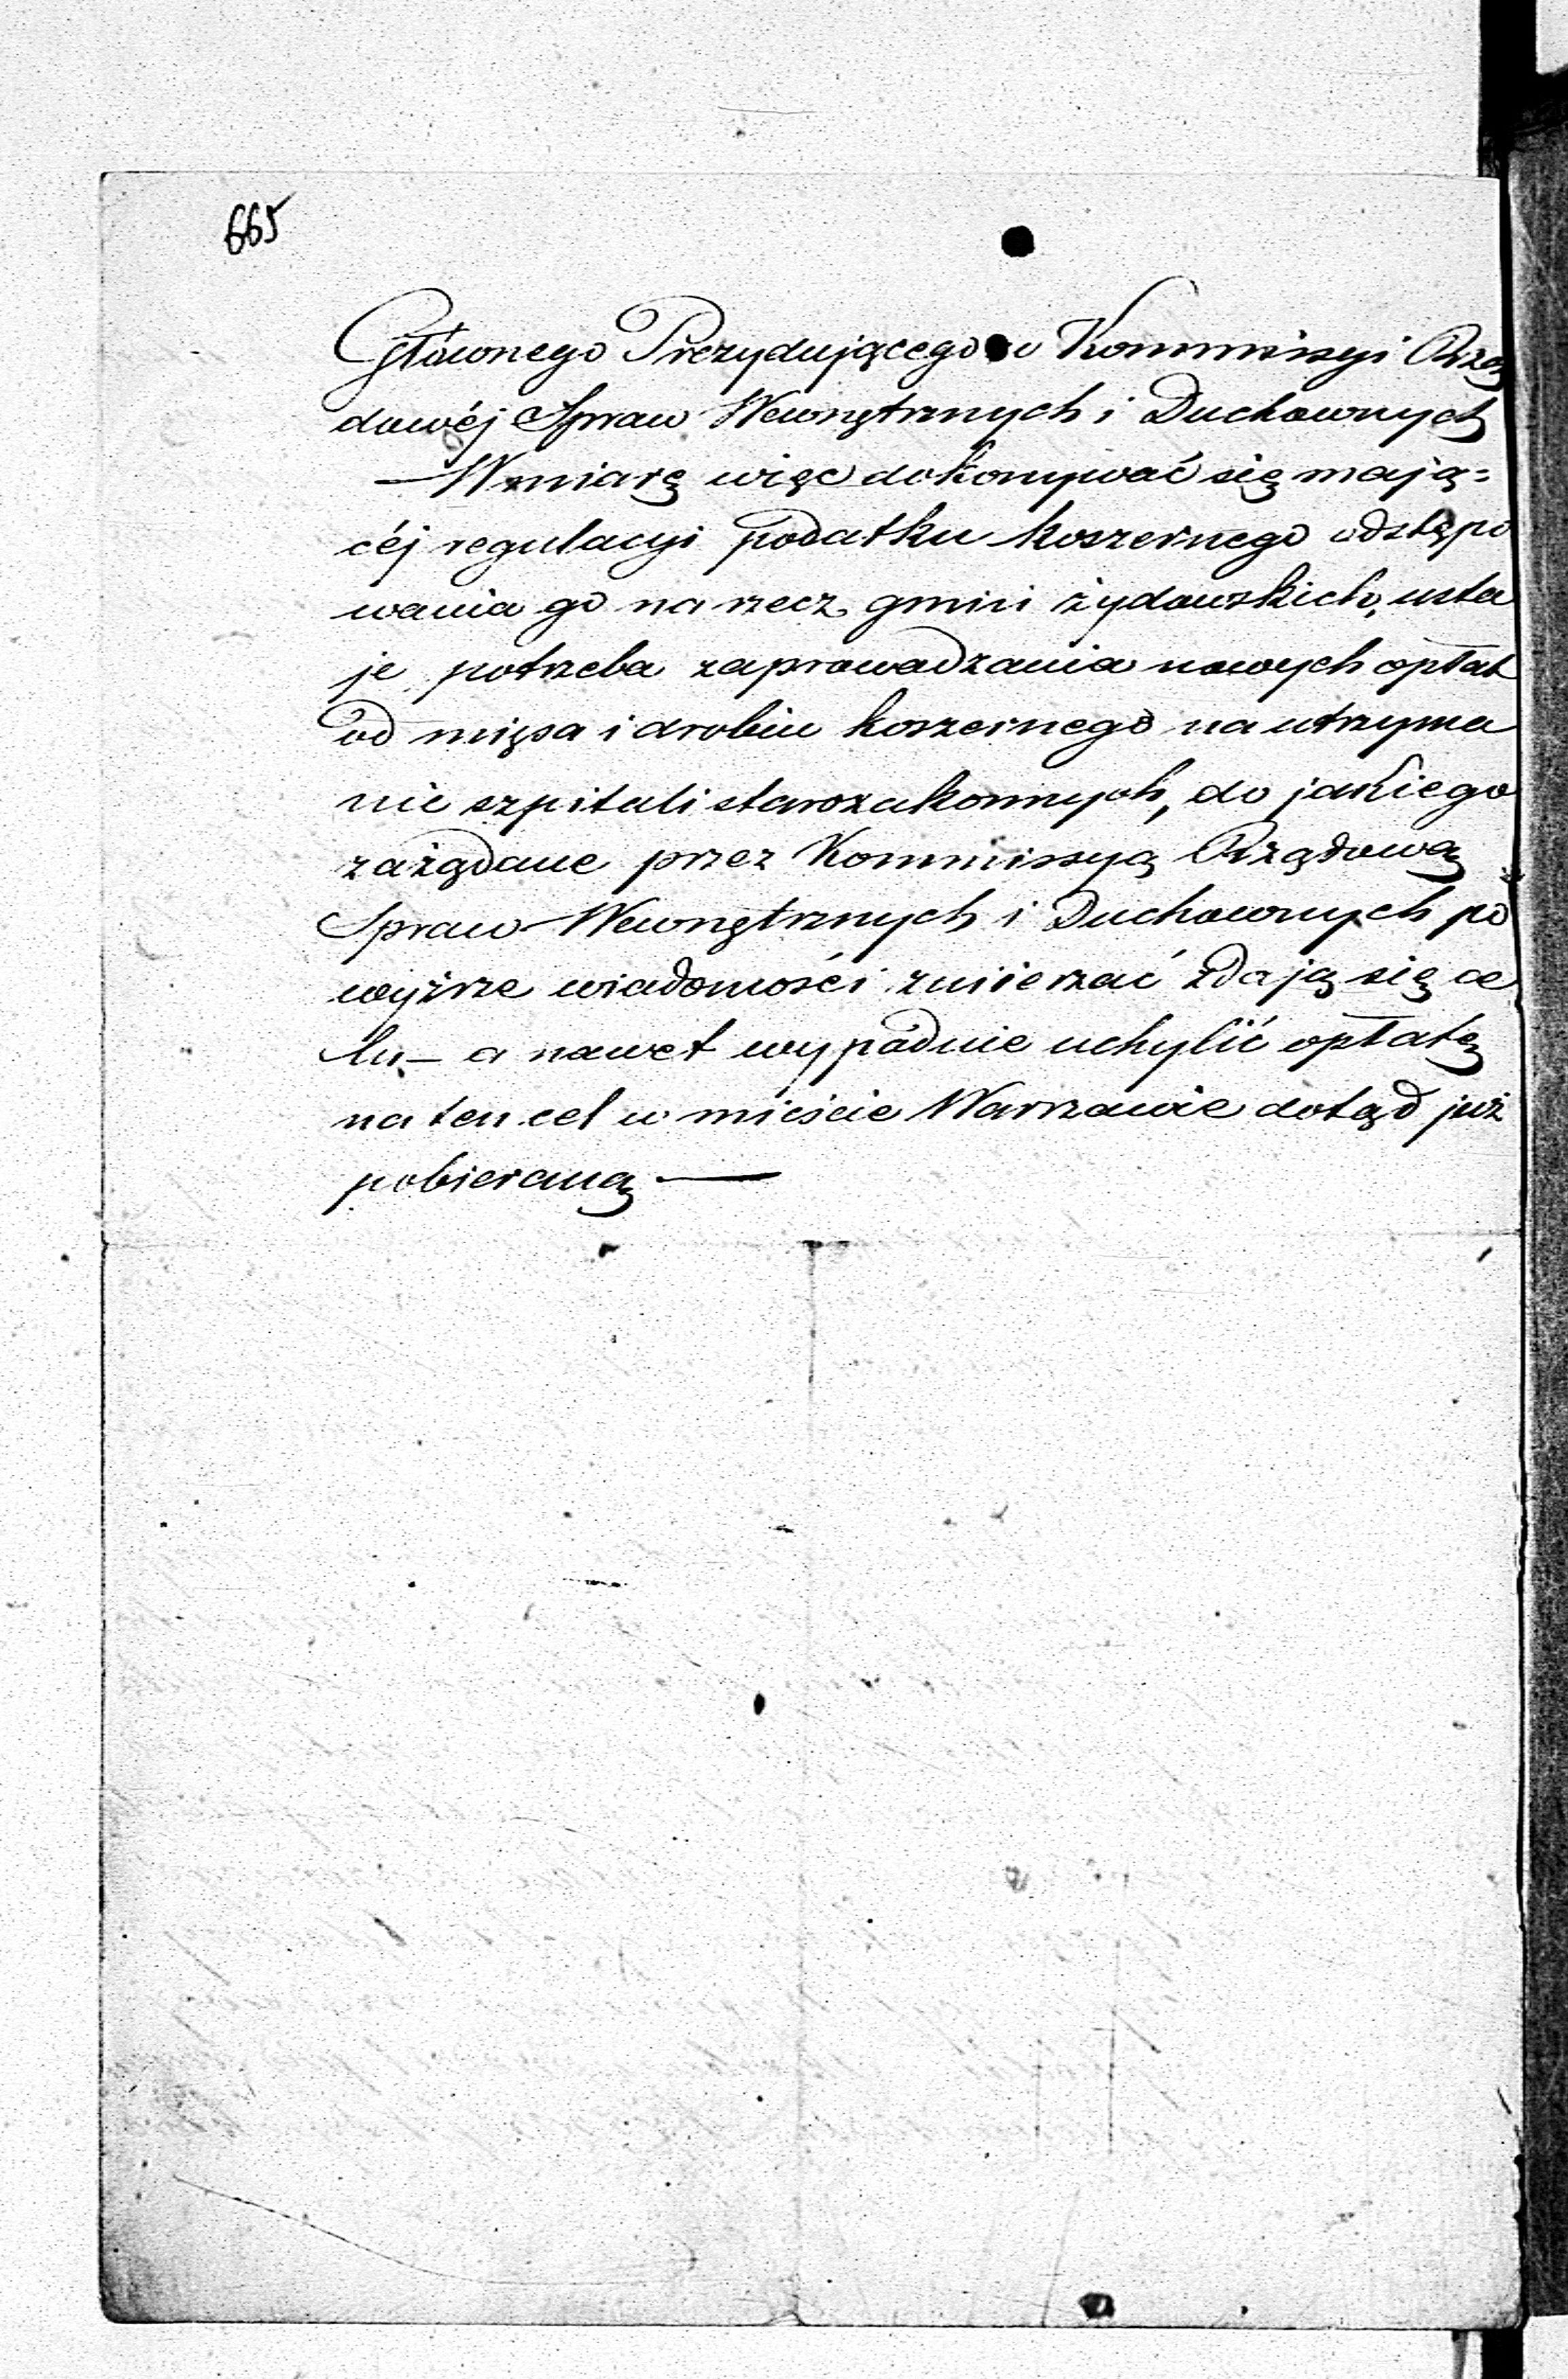 665
Głównego Prezydującego w Kommissyi Rzą
dowéj Spraw Wewnętrznych i Duchownych
— W miarę więc dokonywać się mają=
céj regulacyi podatku koszernego odstępo
wania go na rzecz gmin żydowskich, usta
je potrzeba zaprowadzania nowych opłat
od mięsa i drobiu koszernego na utrzyma
nie szpitali starozakonnych, do jakiego
zażądane przez Kommissyą Rządową
Spraw Wewnętrznych i Duchownych po
wyższe wiadomości zmierzać zdają się ce
lu — a nawet wypadnie uchylić opłatę
na ten cel w mieście Warszawie dotąd już
pobieraną —